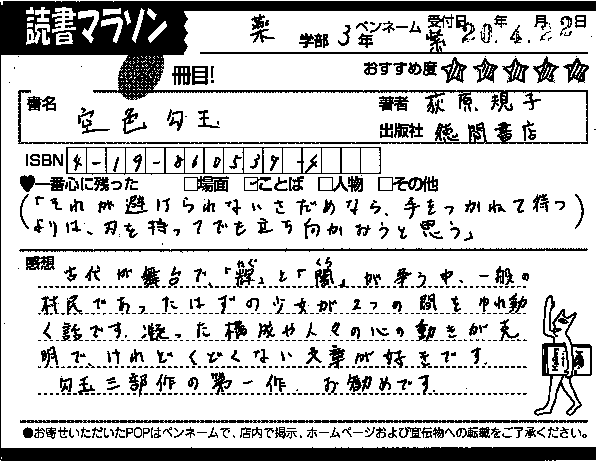 読書マラソン
薬 学部 3年 ペンネーム 紫 受付日 20年 4月 22日
冊目! おすすめ度 ☆☆☆☆☆
書名 空色勾玉
著者 荻原規子
出版社 徳間書店
ISBN 4-19-860539-4
♥一番心に残った □場面 ☑ことば □人物 □その他
(「それが避けられないさだめなら、手をつかねて待つ
よりは、刃を持ってでも立ち向かおうと思う」)
感想 古代が舞台で、「輝」と「闇」が争う中、一般の
かぐ くら
村民であったはずの少女が2つの間をゆれ動
く話です。凝った構成や人々の心の動きが克
明で、けれどくどくない文章が好きです。
勾玉三部作の第一作。お勧めです。
●お寄せいただいたPOPはペンネームで、店内で掲示、ホームページおよび宣伝物への転載をご了承ください。